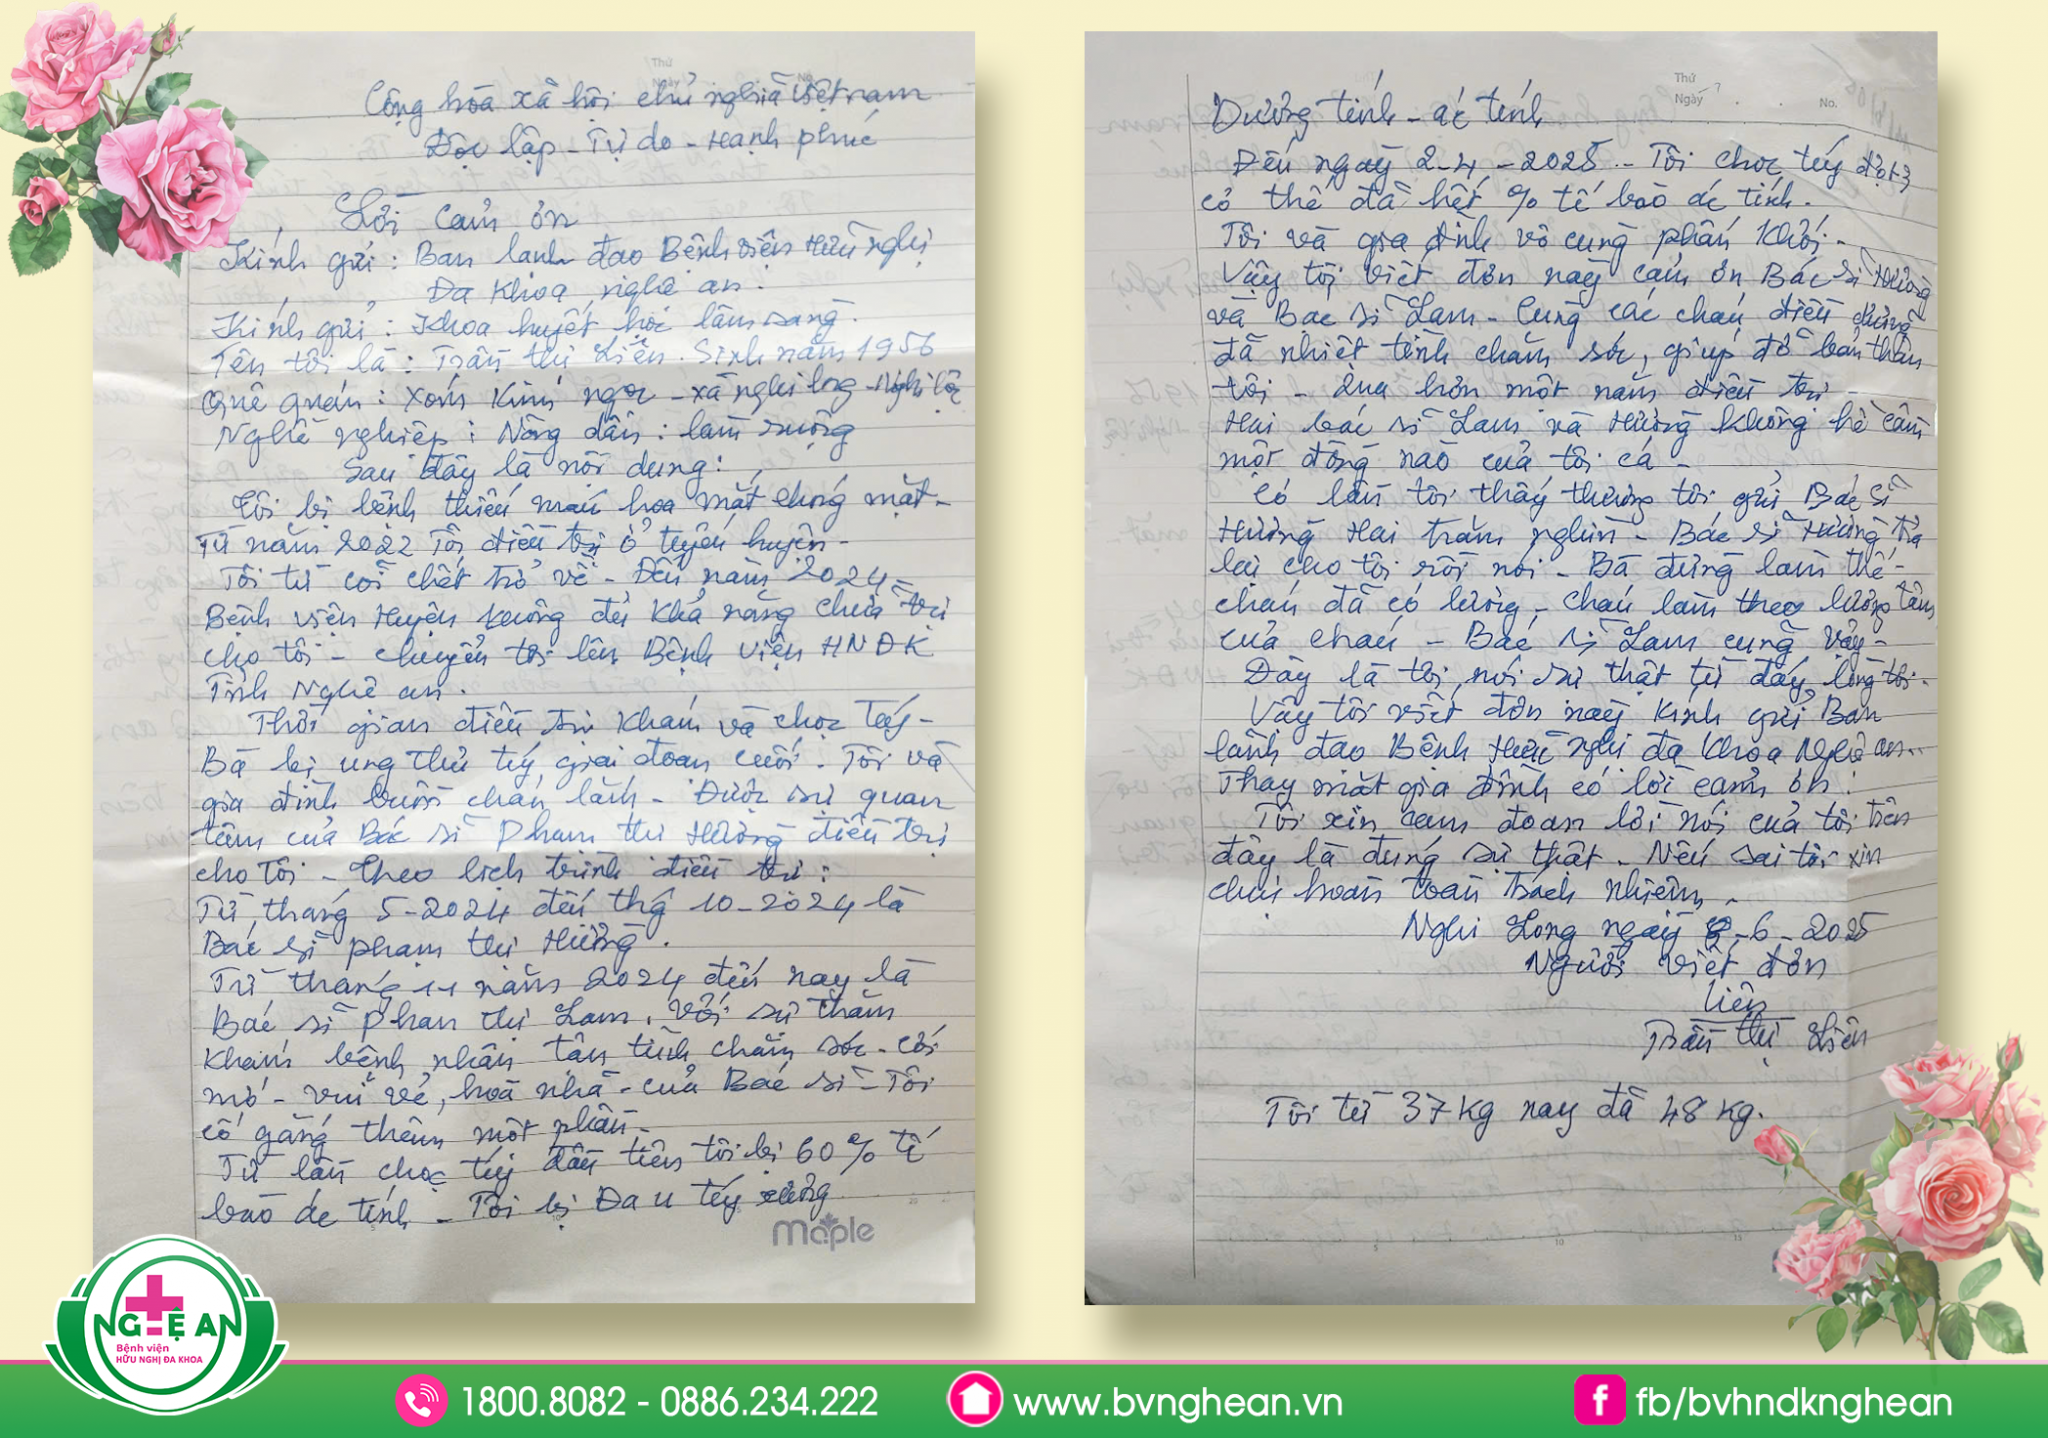 Thứ
Ngày
No.
Cộng hòa xã hội chủ nghĩa việt nam
Độc lập - Tự do - Hạnh phúc
Lời cảm ơn
Kính gửi : Ban lanh đạo Bệnh viện Hữu nghị
Đa Khoa nghệ an.
Kính gửi : Khoa huyết học lâm sàng.
Tên tôi là : Trần thị Liên. Sinh năm 1956
Quê quán : xóm Kim ngọc - xã nghi long - Nghi lộc
Nghề nghiệp : Nông dân : làm ruộng
Sau đây là nội dung :
Tôi bị bệnh thiếu máu hoa mắt chóng mặt -
Từ năm 2022 Tôi điều trị ở tuyến huyện -
Tôi từ cõi chết trở về - Đến năm 2024 -
Bệnh viện Huyện không đủ khả năng chữa trị
cho tôi - chuyển tôi lên Bệnh viện HNĐK
Tỉnh Nghệ an.
Thời gian điều trị khám và chọc Tủy -
Bà bị ung thư tủy giai đoạn cuối. Tôi và
gia đình buồn chán lắm - Được sự quan
tâm của Bác sĩ Phạm thị Hường điều trị
cho Tôi - Theo lịch trình điều trị :
Từ tháng 5-2024 đến thg 10-2024 là
Bác sĩ phạm thị Hường.
Từ tháng 11 năm 2024 đến nay là
Bác sĩ phan thị Lam. Với sự thăm
khám bệnh nhân tận tình chăm sóc - cởi
mở - vui vẻ, hoà nhã - của Bác sĩ - Tôi
cố gắng thêm một phần -
Từ lần chọc tủy đầu tiên tôi bị 60% tế
bào ác tính - Tôi bị Đa u tủy xương
Maple
Thứ
Ngày
No.
Dương tính - ác tính
Đến ngày 2-4-2025 - Tôi chọc tủy đợt 3
có thể đã hết % tế bào ác tính.
Tôi và gia đình vô cùng phấn khởi -
Vậy tôi viết đơn này cảm ơn Bác sĩ Hường
và Bac sĩ Lam - Cùng các cháu điều dưỡng
đã nhiệt tình chăm sóc, giúp đỡ bản thân
tôi - Qua hơn một năm điều trị -
Hai bác sĩ Lam và Hường không hề cầm
một đồng nào của tôi cả -
Có lần tôi thấy thương tôi gửi Bác sĩ
Hường Hai trăm nghìn - Bác sĩ Hường trả
lại cho tôi rồi nói - Bà đừng làm thế -
cháu đã có lương - cháu làm theo lương tâm
của cháu - Bác sĩ Lam cũng vậy -
Đây là tôi nói sự thật từ đáy lòng tôi.
Vậy tôi viết đơn này kính gửi Ban
lãnh đạo Bệnh Hữu nghị đa khoa Nghệ an..
Thay mặt gia đình có lời cảm ơn !
Tôi xin cam đoan lời nói của tôi trên
đây là đúng sự thật - Nếu sai tôi xin
chịu hoàn toàn trách nhiệm -
Nghi Long ngày -6-2025
Người viết đơn
Liên
Trần thị Liên
Tôi từ 37 kg nay đã 48 kg.
NGHỆ AN
Bệnh viện
HỮU NGHỊ ĐA KHOA
1800.8082 - 0886.234.222
www.bvnghean.vn
fb/bvhndknghean